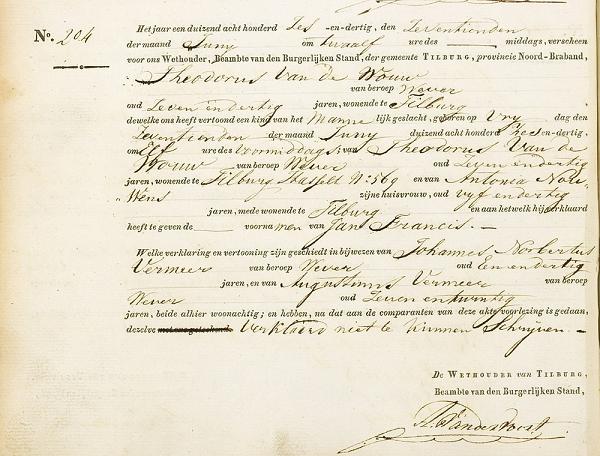 No. 204
Het jaar een duizend acht honderd Zes -en-dertig, den Zeventienden
der maand Juny om twaalf ure des middags, verscheen
voor ons Wethouder, Beambte van den Burgerlijken Stand, der gemeente TILBURG, provincie Noord-Braband,
Theodorus Van de Wouw
van beroep Wever
oud Zeven en dertig jaren, wonende te Tilburg
dewelke ons heeft vertoond een kind van het Manne lijk geslacht, geboren op Vry dag den
Zeventienden der maand Juny duizend acht honderd Zes en-dertig,
om Elf ure des Voormiddags; van Theodorus Van de
Wouw van beroep Wever oud Zeven en dertig
jaren, wonende te Tilburg Hasselt N: 569 en van Antonia Nou
Wens zijne huisvrouw, oud vyf en dertig
jaren, mede wonende te Tilburg en aan hetwelk hij verklaard
heeft te geven de voorna men van Jan Francis. —
Welke verklaring en vertooning zijn geschiedt in bijwezen van Johannes Norbertus
Vermeer van beroep Wever oud een en dertig
jaren, en van Augustinus Vermeer van beroep
Wever oud Zeven en twintig
jaren, beide alhier woonachtig; en hebben, na dat aan de comparanten van deze akte voorlezing is gedaan,
dezelve verklaard niet te kunnen Schryven. —
De WETHOUDER van TILBURG,
Beambte van den Burgerlijken Stand,